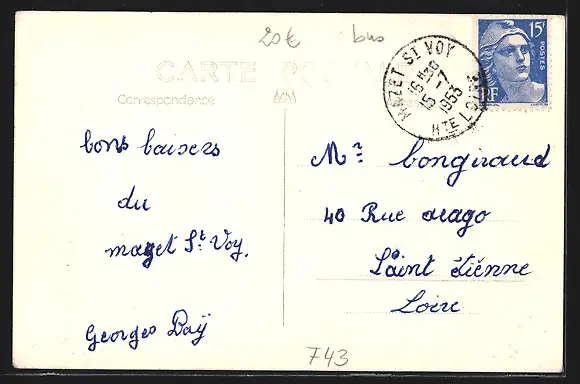 20€ bus
CARTE POSTALE
Correspondance
MAZET ST VOY
16H30
15-7
1953
HTE LOIRE
15F
POSTES
RF
bons baisers
du
mazet St. Voy.
Georges Daÿ
Mr. Longiraud
40 Rue arago
Saint étiénne
Loire
743